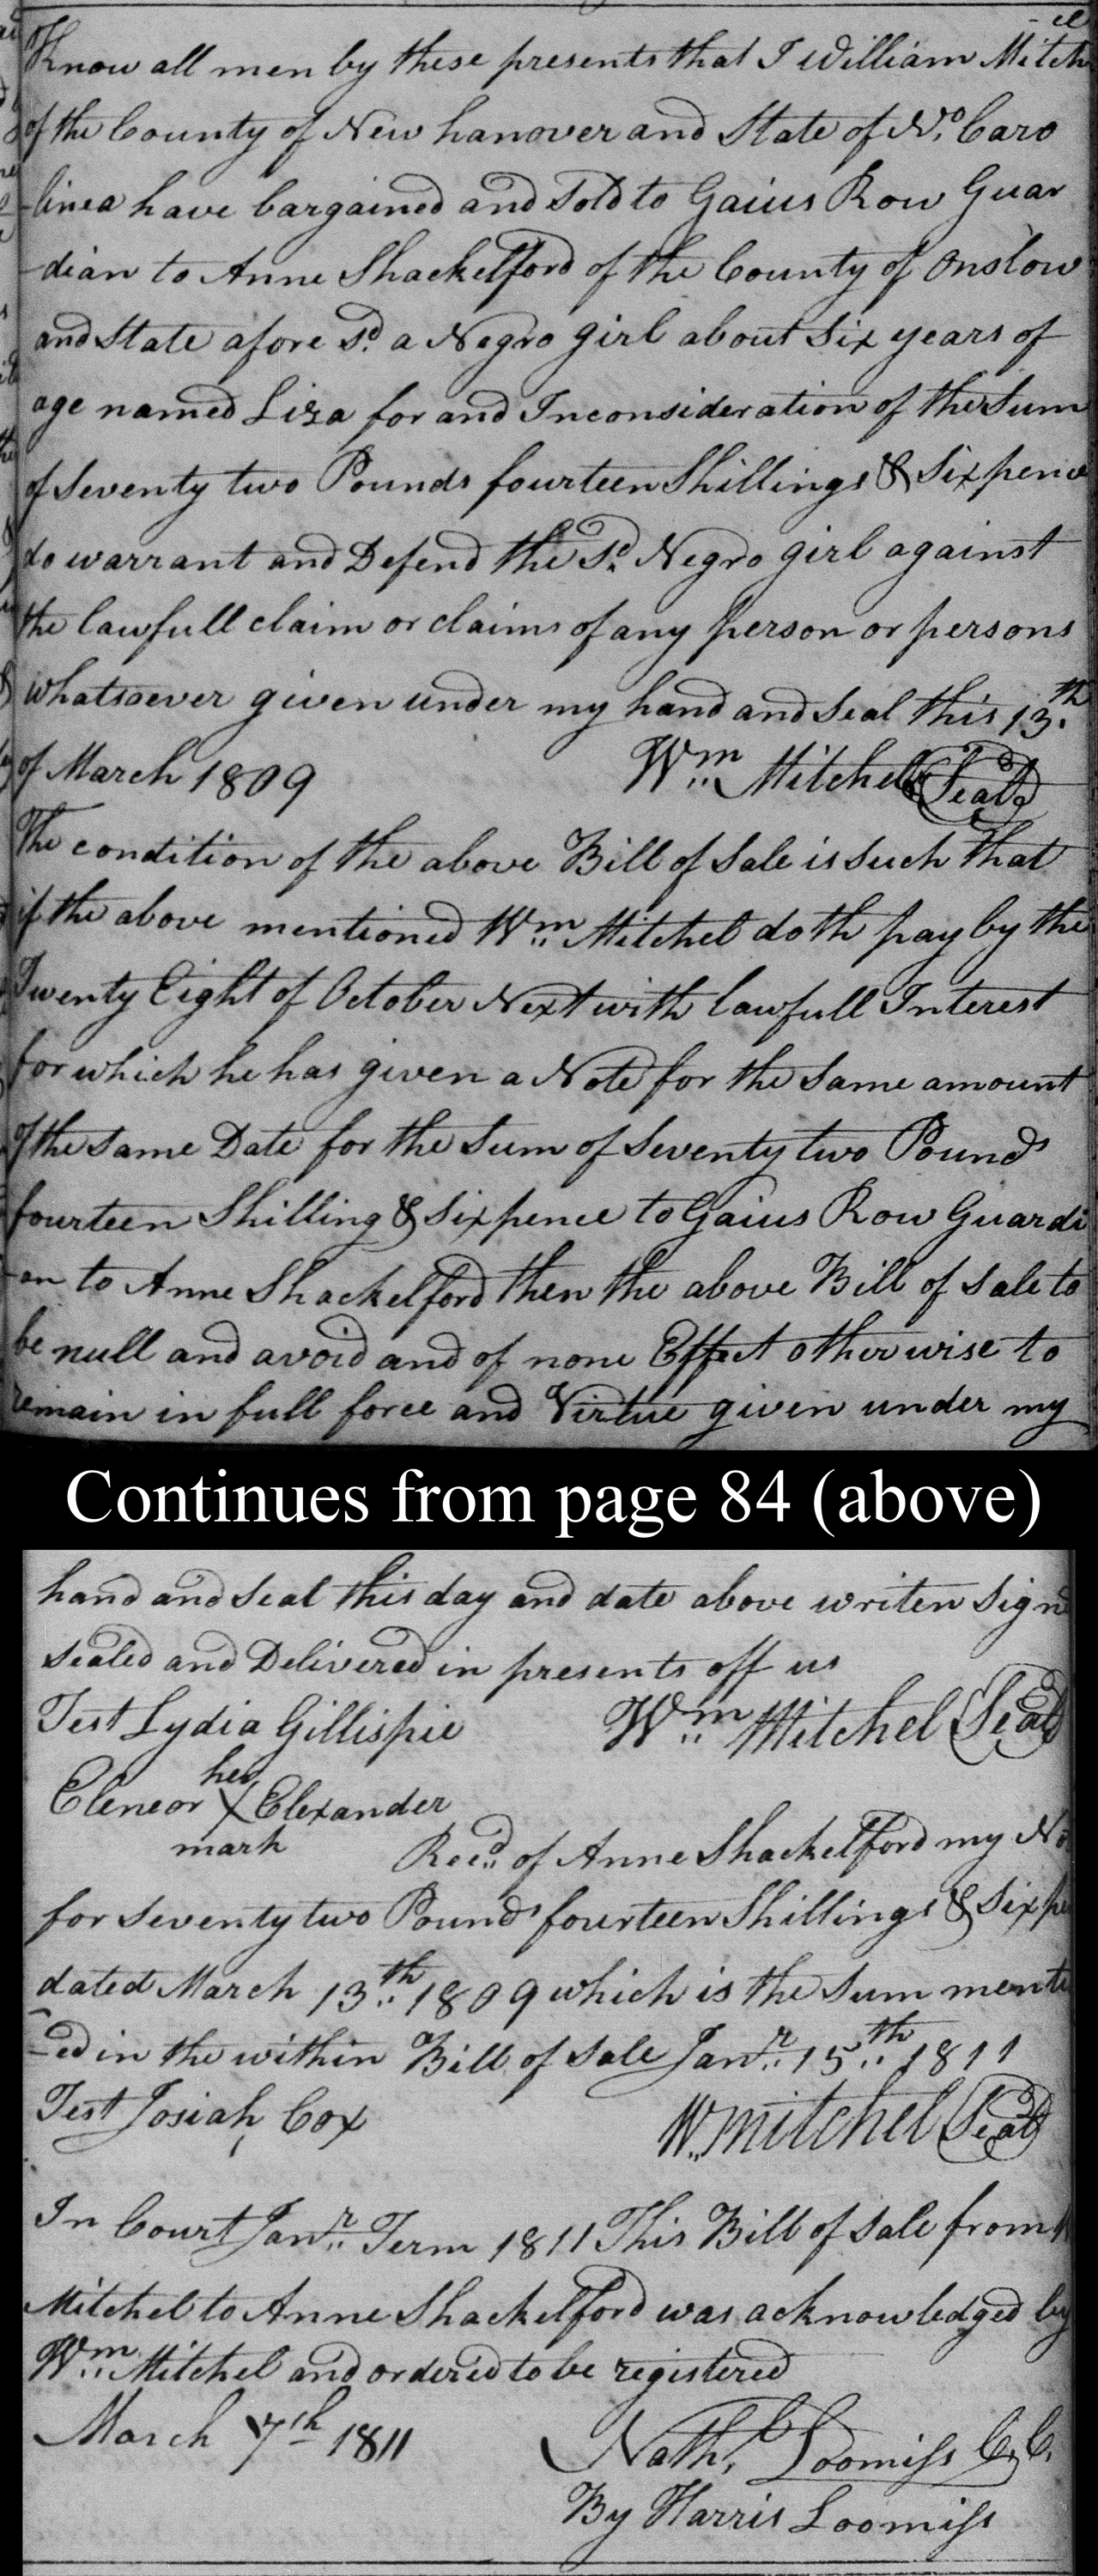 -el
Know all men by these presents that I William Mitch
of the County of New hanover and State of No. Caro
-linea have bargained and sold to Gaius Row Guar
-dian to Anne Shackelford of the County of Onslow
and State afore sd. a Negro girl about six years of
age named Liza for and Inconsideration of the Sum
of Seventy two Pounds fourteen Shillings & Sixpence
do warrant and Defend the Sd. Negro girl against
the lawfull claim or claims of any person or persons
whatsoever given under my hand and seal this 13th.
of March 1809 Wm Mitchel Seal
The condition of the above Bill of Sale is such that
if the above mentioned Wm Mitchel doth pay by the
Twenty Eight of October Next with lawfull Interest
for which he has given a Note for the same amount
of the same Date for the sum of seventy two Pounds
fourteen Shilling & Sixpence to Gaius Row Guardi
-an to Anne Shackelford then the above Bill of Sale to
be null and avoid and of none Effect otherwise to
remain in full force and Virtue given under my
Continues from page 84 (above)
hand and seal this day and date above writen Signd
sealed and Delivered in presents off us
Test Lydia Gillispie Wm Mitchel Seal
her
Eleneor X Elexander
mark
Recd. of Anne Shackelford my No
for seventy two Pounds fourteen Shillings & Six pe
dated March 13th. 1809 which is the sum menti
-ed in the within Bill of Sale Janr. 15th. 1811
Test Josiah Cox W. mitchel Seal
In Court Janr. Term 1811 This Bill of Sale from
Mitchel to Anne Shackelford was acknowledged by
Wm Mitchel and ordered to be registered
March 7th 1811 Nath. Loomiss C. C.
By Harris Loomiss